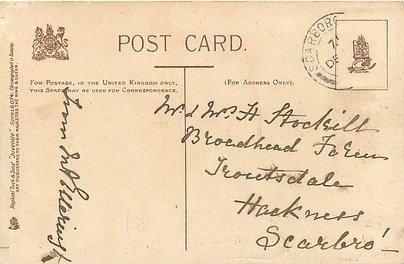 POST CARD.
FOR POSTAGE, IN THE UNITED KINGDOM ONLY,
THIS SPACE MAY BE USED FOR CORRESPONDENCE.
(FOR ADDRESS ONLY).
SCARBORO
DE
Mr & Mrs H Stockill
Broadhead Farm
Troutsdale
Hackness
Scarbro'
from
Raphael Tuck & Sons'
SERIES 6079
ART PUBLISHERS TO THEIR MAJESTIES THE KING & QUEEN.